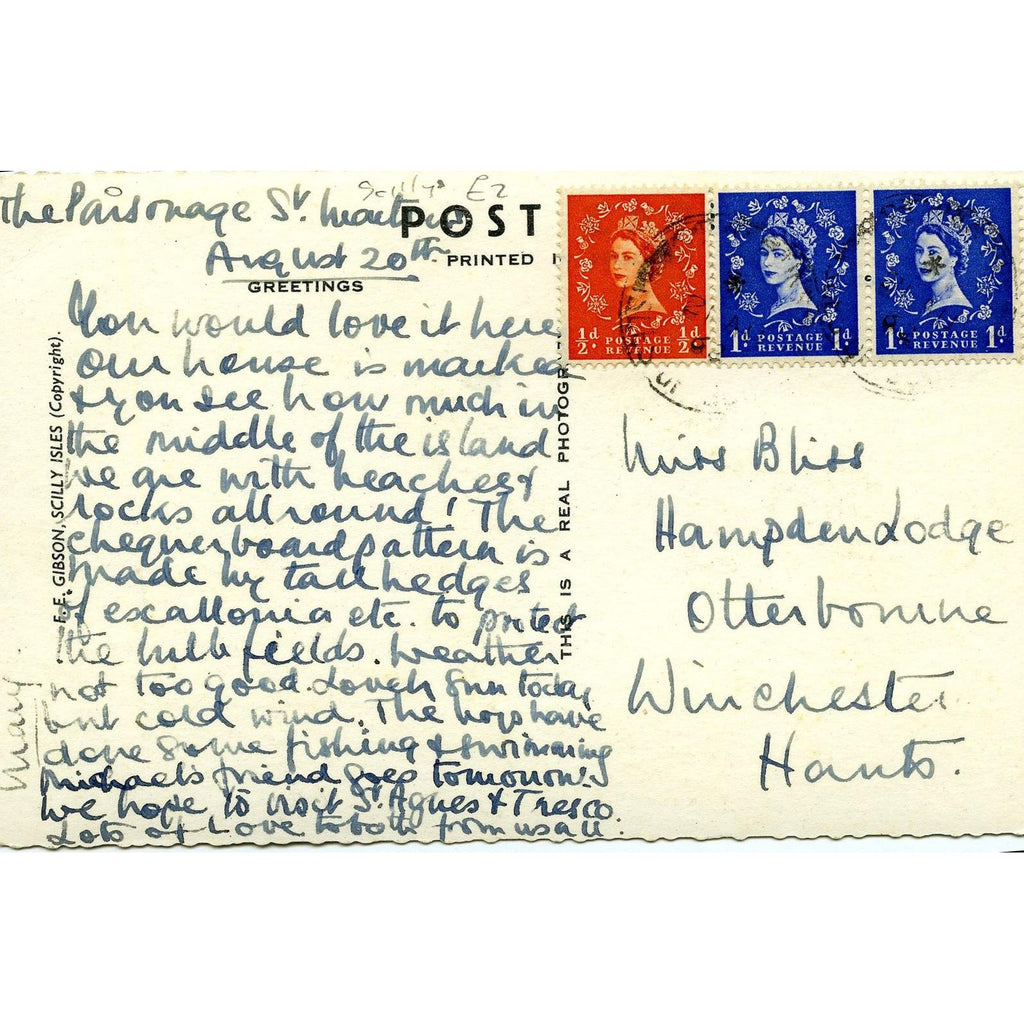 Scilly's £2
The Parsonage St. Martins
August 20th
POST
PRINTED
GREETINGS
You would love it here
our house is marked
& you see how much in
the middle of the island
we are with beaches &
rocks all round! The
chequerboard pattern is
made by tall hedges
of escallonia etc. to protect
the bulb fields. Weather
not too good. Lovely sun today
but cold wind. The boys have
done some fishing & swimming
Michael's friend goes tomorrow.
We hope to visit St. Agnes & Tresco.
Lots of Love to both from us all.
Mary
F. E. GIBSON, SCILLY ISLES (Copyright).
THIS IS A REAL PHOTOGR
½d ½d
POSTAGE
REVENUE
1d 1d
POSTAGE
REVENUE
1d 1d
POSTAGE
REVENUE
Miss Bliss
Hampden Lodge
Otterbourne
Winchester
Hants.